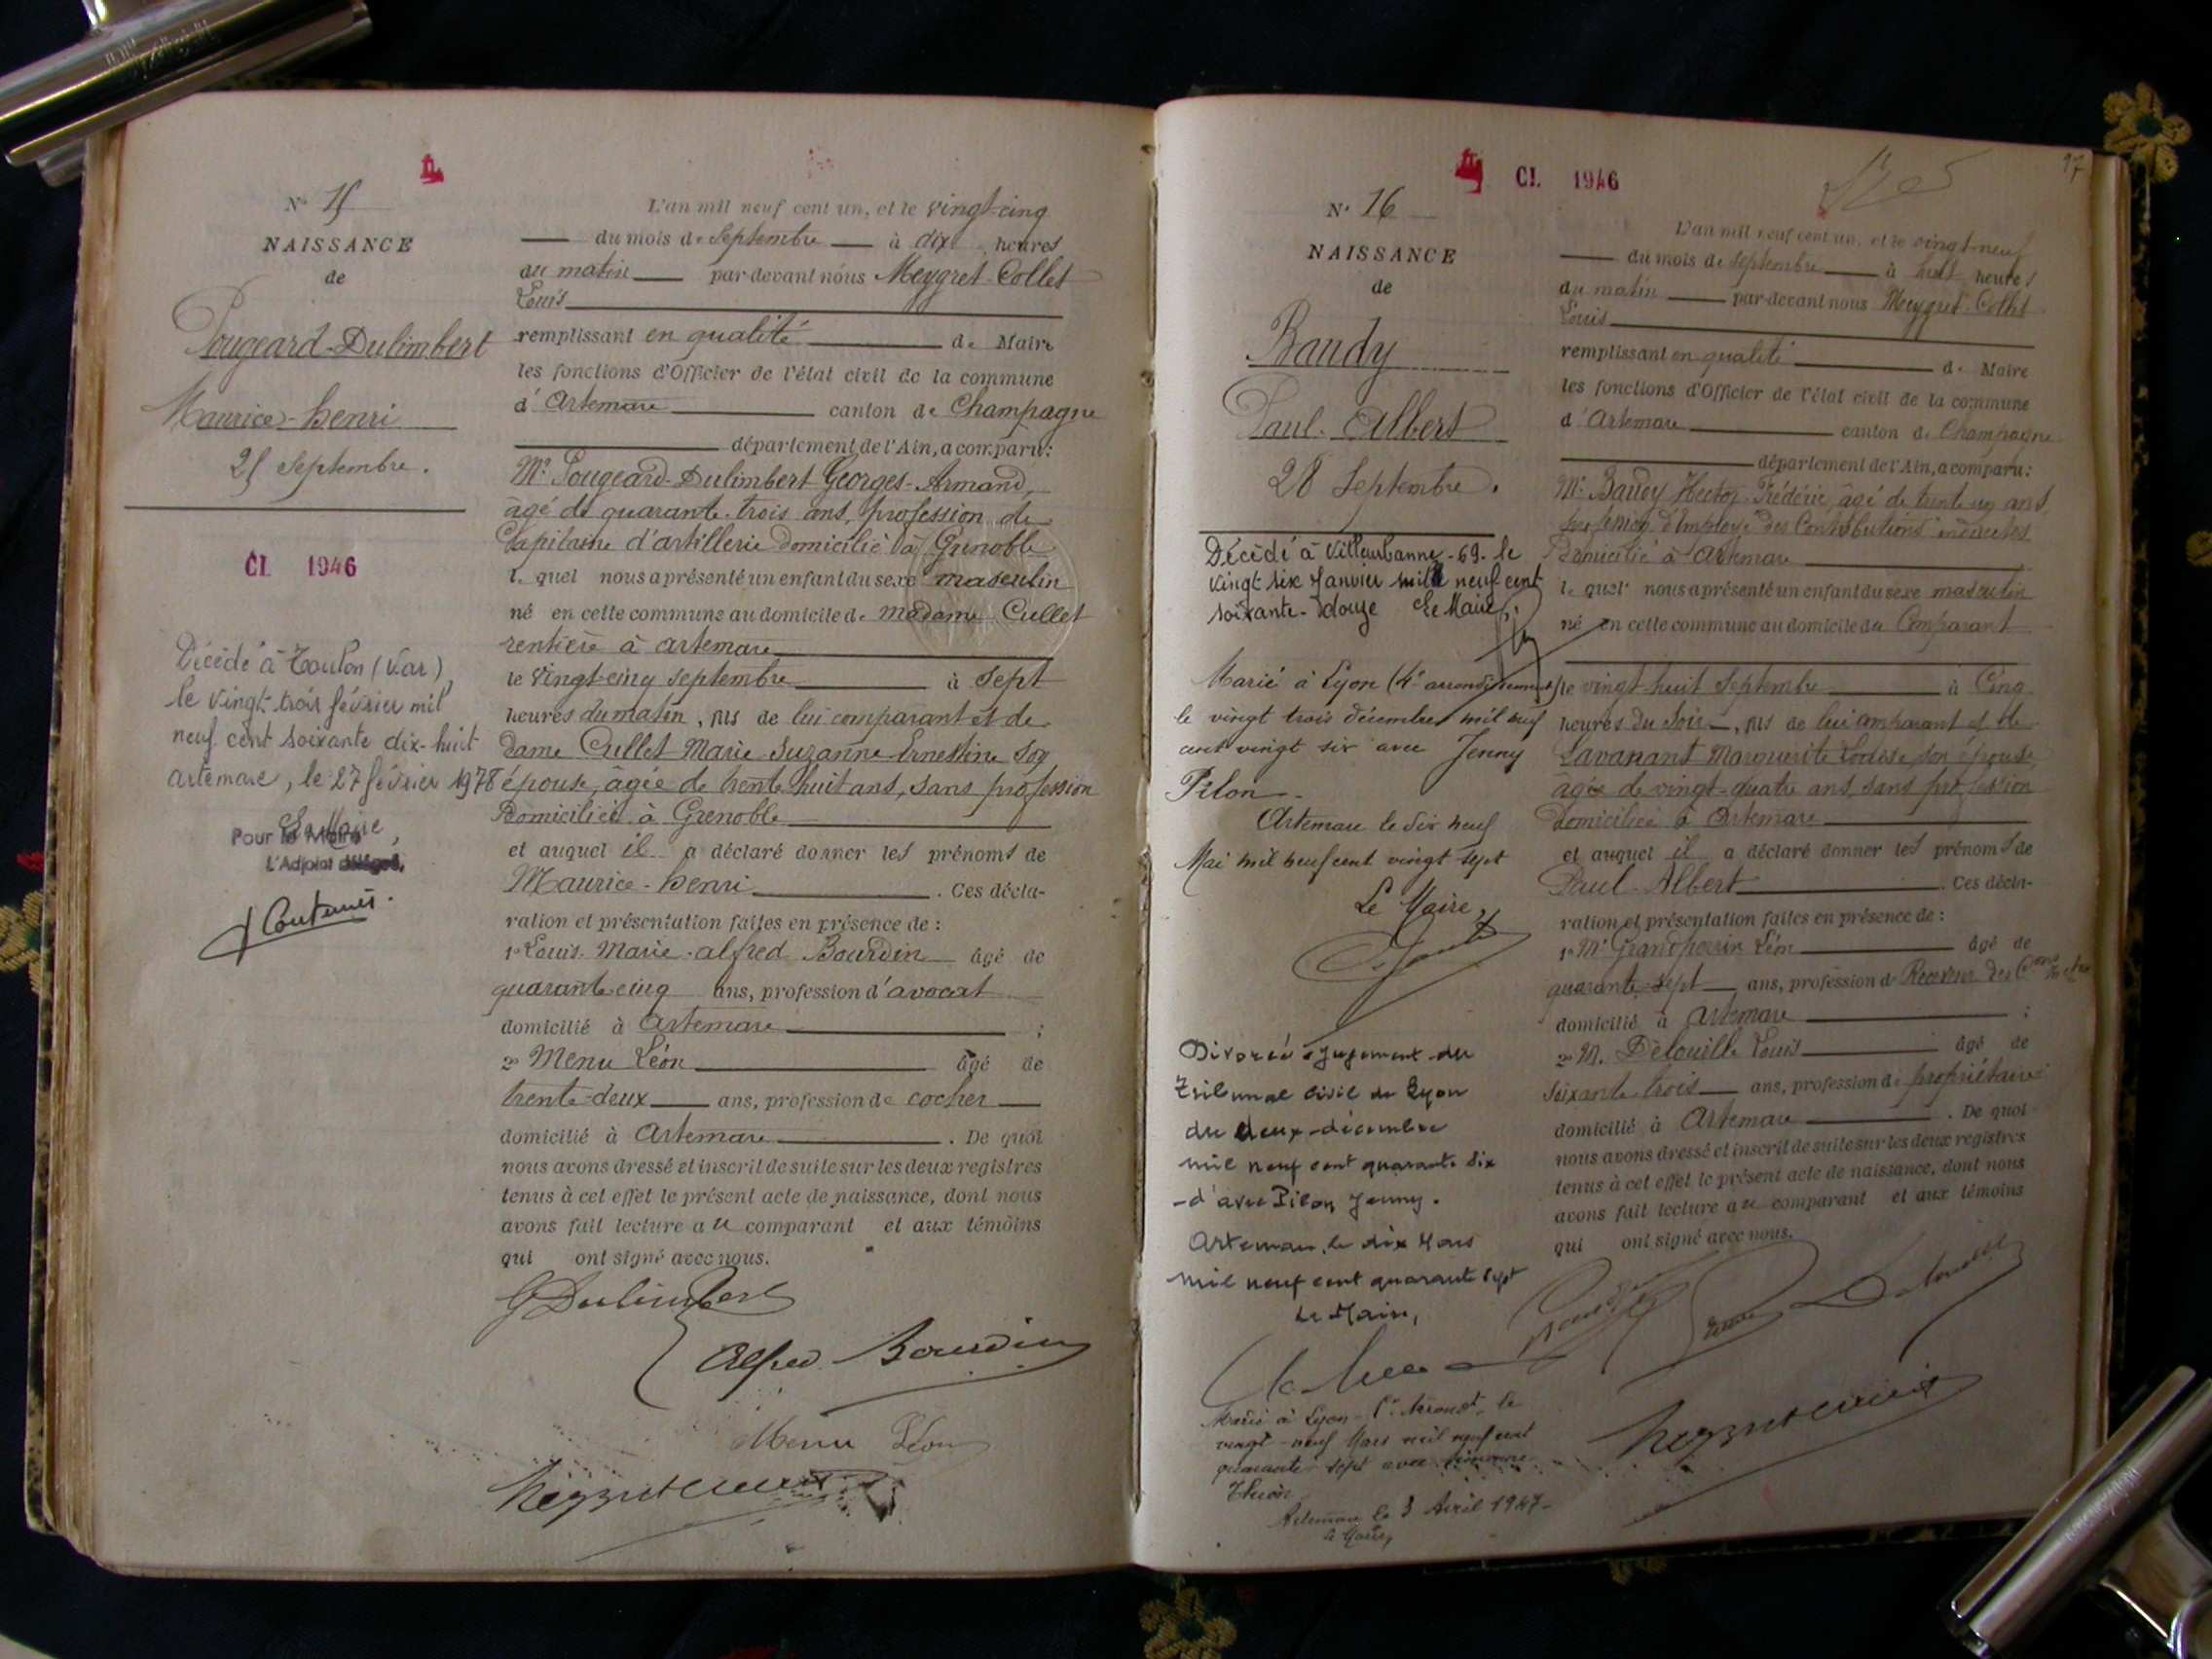 N° 15
NAISSANCE
de
Pougeard-Dulimbert
Maurice-Henri
25 Septembre.
CI. 1946
Décédé à Toulon (Var),
le vingt-trois février mil
neuf cent soixante dix-huit
Artemare, le 27 février 1978
Le Maire,
Pour le Maire
L'Adjoint délégué,
L'an mil neuf cent un, et le vingt-cinq
du mois de Septembre à dix heures
du matin par-devant nous Meygret-Collet
Louis
remplissant en qualité de Maire
les fonctions d'Officier de l'état civil de la commune
d'Artemare canton de Champagne
département de l'Ain, a comparu:
Mr Pougeard-Dulimbert Georges-Armand,
âgé de quarante-trois ans, profession de
Capitaine d'artillerie domicilié à Grenoble
lequel nous a présenté un enfant du sexe masculin
né en cette commune au domicile de Madame Cullet
rentière à Artemare
le vingt-cinq septembre à sept
heures du matin, fils de lui comparant et de
dame Cullet Marie-Suzanne-Ernestine son
épouse, âgée de trente huit ans, sans profession
Domiciliée à Grenoble
et auquel il a déclaré donner les prénoms de
Maurice-Henri. Ces décla-
ration et présentation faites en présence de:
1° Louis-Marie-Alfred Bourdin âgé de
quarante cinq ans, profession d'avocat
domicilié à Artemare;
2° Menu Léon âgé de
trente-deux ans, profession de cocher
domicilié à Artemare. De quoi
nous avons dressé et inscrit de suite sur les deux registres
tenus à cet effet le présent acte de naissance, dont nous
avons fait lecture au comparant et aux témoins
qui ont signé avec nous.
G Dulimbert
Alfred Bourdin
Menu Léon
CI. 1946
17
N° 16
NAISSANCE
de
Baudy
Paul-Albert
28 Septembre.
Décédé à Villeurbanne-69-le
vingt six Janvier mil neuf cent
soixante-douze Le Maire,
Marié à Lyon (4e arrondissement)
le vingt trois décembre mil neuf
cent vingt six avec Jenny
Pilon-
Artemare le dix neuf
Mai mil neuf cent vingt sept
Le Maire,
Divorcé jugement du
Tribunal Civil de Lyon
du deux-décembre
mil neuf cent quarante six
-d'avec Pilon Jenny.
Artemare, le dix Mars
mil neuf cent quarante sept
Le Maire,
Marié à Lyon Arrondt, le
vingt-neuf Mars mil neuf cent
quarante sept avec
Artemare le 3 Avril 1947-
Le Maire,
L'an mil neuf cent un, et le vingt-neuf
du mois de septembre à huit heures
du matin par-devant nous Meygret-Collet
Louis
remplissant en qualité de Maire
les fonctions d'Officier de l'état civil de la commune
d'Artemare canton de Champagne
département de l'Ain, a comparu:
Mr Baudy Hector-Frédéric, âgé de trente un ans
profession d'Employé des Contributions indirectes
Domicilié à Artemare
lequel nous a présenté un enfant du sexe masculin
né en cette commune au domicile du Comparant
le vingt-huit Septembre à Cinq
heures du Soir, fils de lui comparant et de
Lavanant Marguerite Louise son épouse,
âgée de vingt-quatre ans, sans profession
Domiciliée à Artemare
et auquel il a déclaré donner les prénoms de
Paul-Albert. Ces décla-
ration et présentation faites en présence de:
1° Mr Grandperrin Léon âgé de
quarante-sept ans, profession de Receveur des
domicilié à Artemare;
2° M. Delouille Louis âgé de
soixante trois ans, profession de propriétaire
domicilié à Artemare. De quoi
nous avons dressé et inscrit de suite sur les deux registres
tenus à cet effet le présent acte de naissance, dont nous
avons fait lecture au comparant et aux témoins
qui ont signé avec nous.